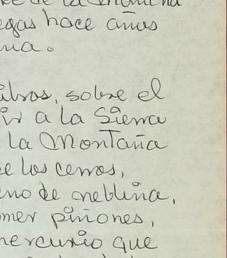 de la Mancha
egas hace años
ma.
libros, sobre el
ir a la Sierra
la Montaña
e los cerros,
eno de neblina,
mer piñones,
mercurio que